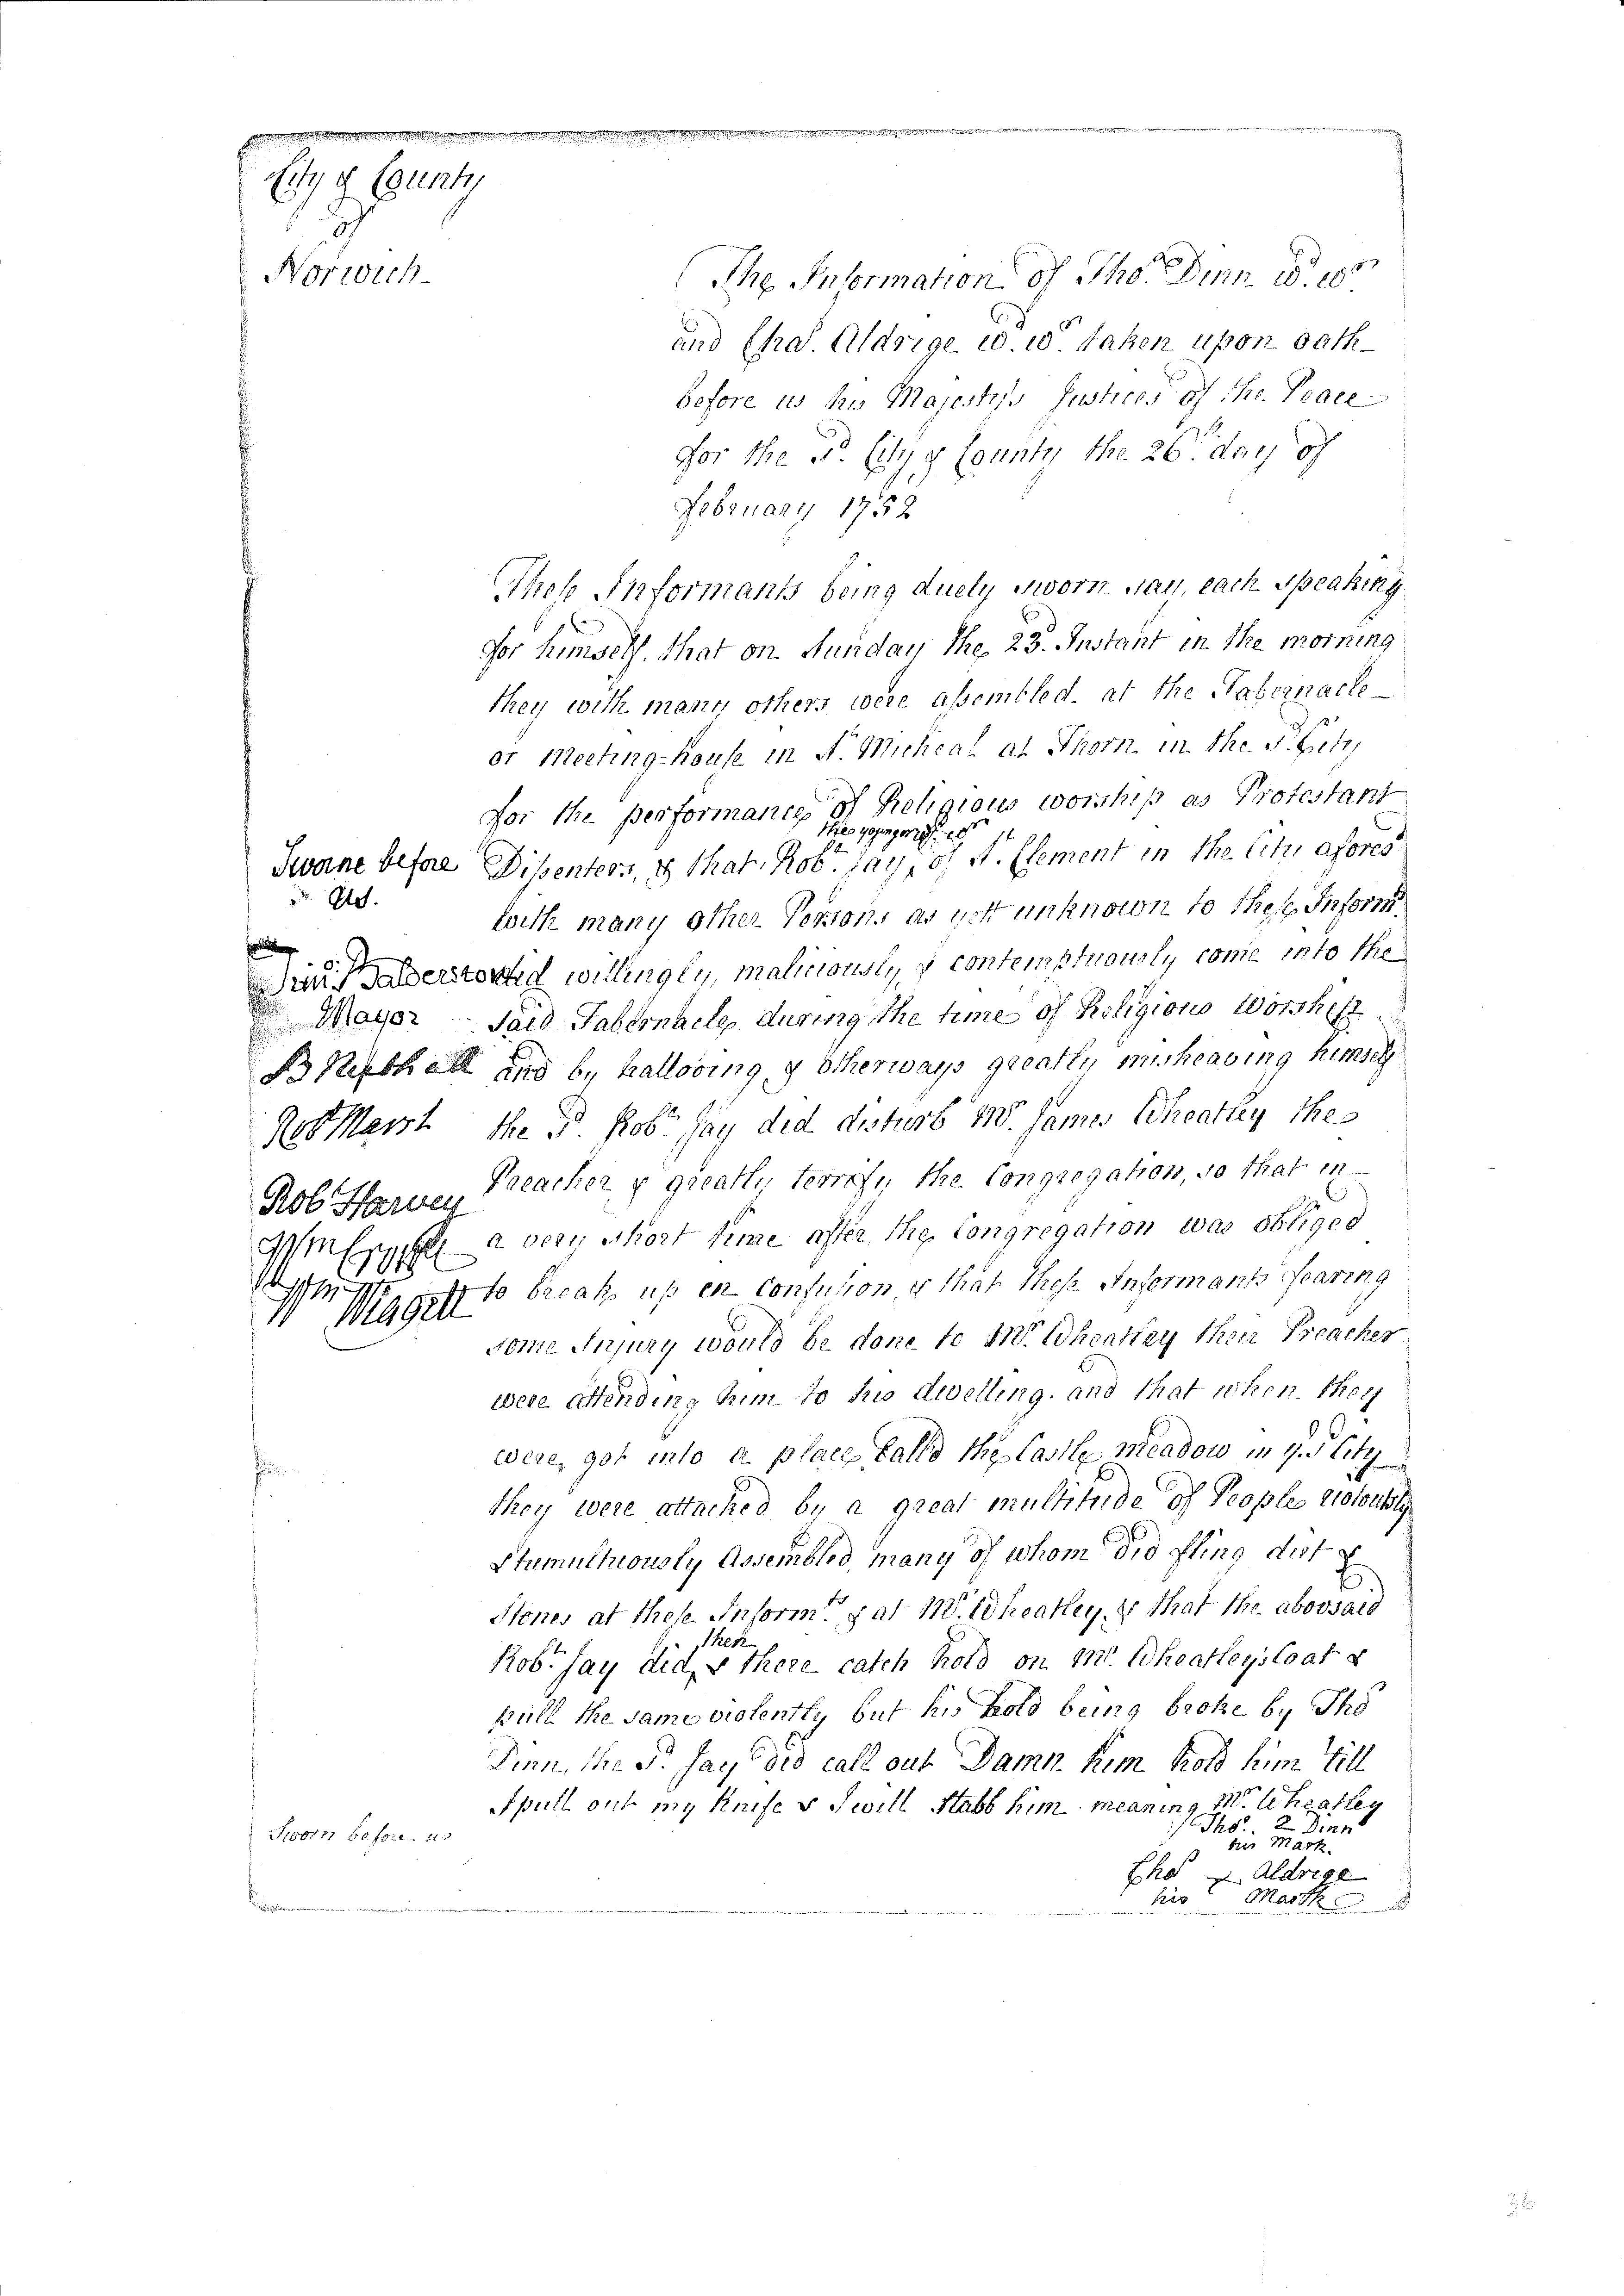 City & County
of
Norwich
The Information of Tho.s Dinn w.d w.r
and Cha.s Aldrige w.d w.r taken upon oath
before us his Majestys Justices of the Peace
for the s.d City & County the 26.th day of
February 1752
These Informants being duely sworn say, each speaking
for himself, that on Sunday the 23.d Instant in the morning
they with many others were assembled at the Tabernacle
or Meeting-house in S.t Micheal at Thorn in the s.d City
for the performance of Religious worship as Protestant
the younger w.d w.r
Dissenters, & that Rob.t Jay, of S.t Clement in the City afores.d
with many other Persons as yett unknown to these Inform.ts
did willingly, maliciously, & contemptuously come into the
said Tabernacle during the time of Religious Worship
and by hallooing, & otherways greatly misheaving himself
the s.d Rob.t Jay did disturb M.r James Wheatley the
Preacher & greatly terrify the Congregation, so that in
a very short time after the Congregation was obliged
to break up en Confusion & that these Informants fearing
some Injury would be done to M.r Wheatley their Preacher
were attending him to his dwelling, and that when they
were got into a place Call'd the Castle meadow in y.e s.d City
they were attacked by a great multitude of People riotously
& tumultuously Assembled, many of whom did fling dirt &
Stones at these Inform.ts & at M.r Wheatley, & that the abovsaid
then
Rob.t Jay did & there catch hold on M.r Wheatleys Coat &
pull the same violently but his hold being broke by Tho.s
Dinn, the s.d Jay did call out Damn him hold him till
I pull out my Knife & I will Stabb him meaning M.r Wheatley
Tho.s 2 Dinn
his Mark.
Cha.s x Aldrige
his Mark
Sworne before
us
Mayor
B Nuthall
Rob Marsh
Rob Harvey
Wm Crowe
Wm Wiggett
Sworn before us
36